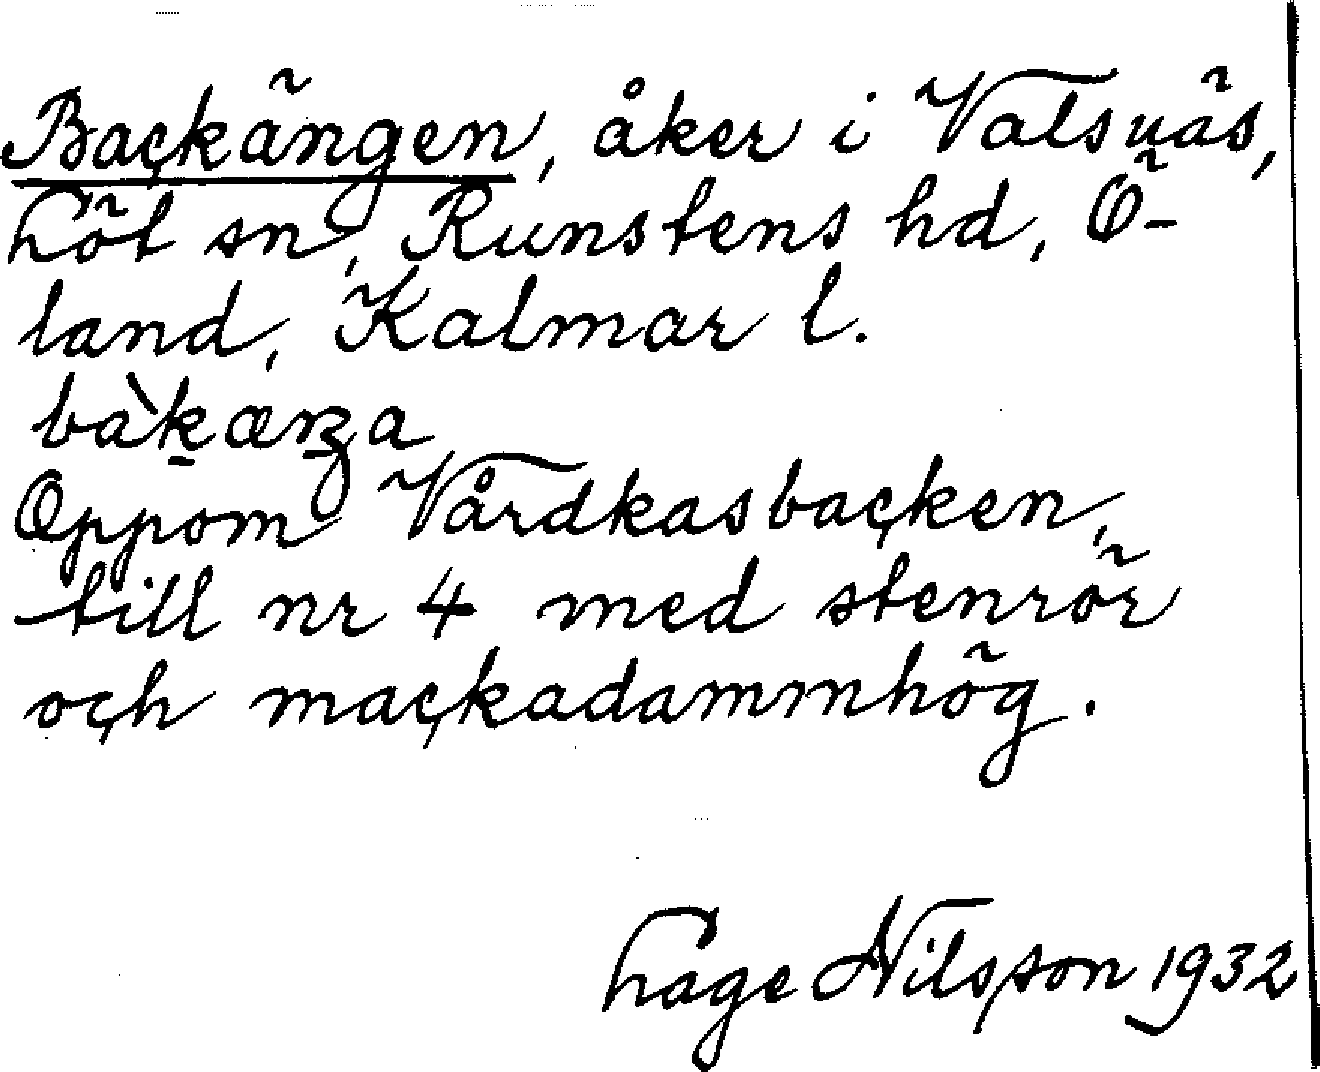 Backängen, åker i Valsnäs,
Löt sn, Runstens hd, Ö-
land, Kalmar l.
Oppom Vårdkasbacken,
till nr 4 med stenrör
och mackadammhög.
Hage Nilsson 1932